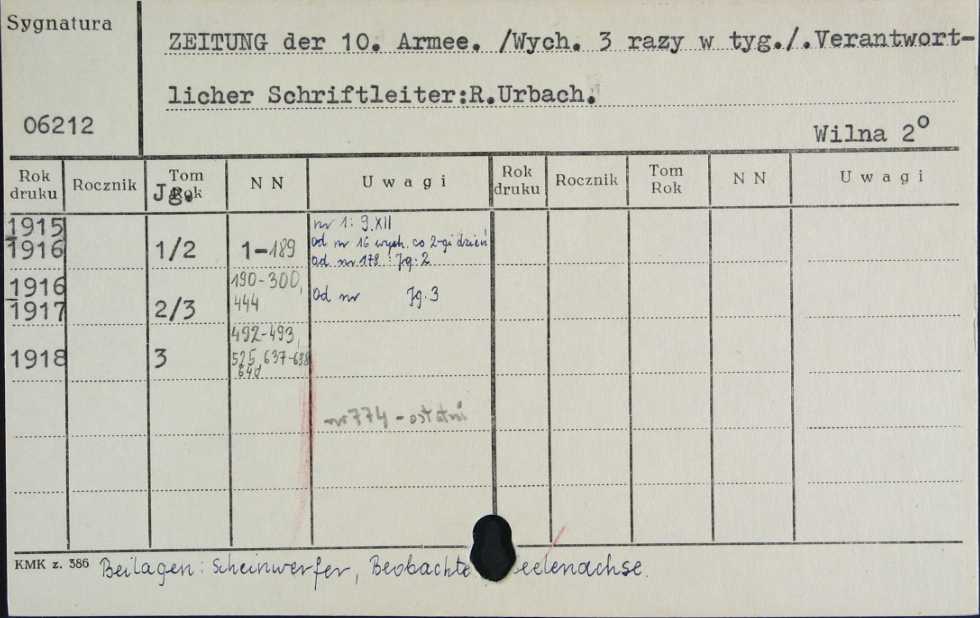 Sygnatura
06212
ZEITUNG der 10. Armee. /Wych. 3 razy w tyg./.Verantwort-
licher Schriftleiter:R.Urbach.
Wilna 2°
Rok druku Rocznik Tom Rok Jg. N N Uwagi Rok druku Rocznik Tom Rok N N Uwagi
1915
1916 1/2 1-189 nr 1: 9.XII
od nr 16 wych. co 2-gi dzień
od nr 178 : Jg. 2
1916
1917 2/3 190-300, 444 od nr Jg. 3
1918 3 492-493, 525, 637-638
nr 774 - ostatni
KMK z. 386 Beilagen: Scheinwerfer, Beobachte